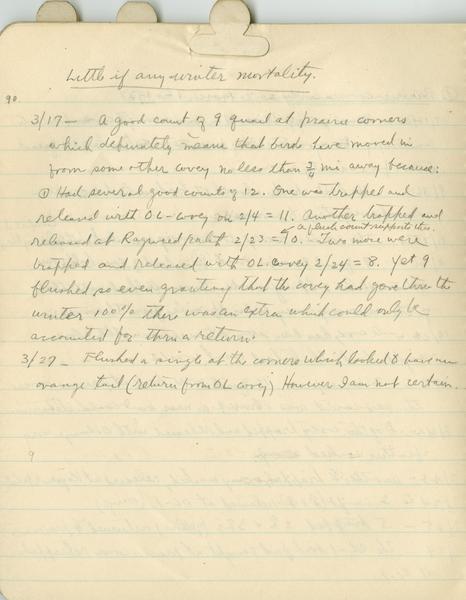 Little if any winter mortality.
90
3/17 — A good count of 9 quail at prairie corners
which definitely means that birds have moved in
from some other covey no less than 3/4 mi away because:
① Had several good counts of 12. One was trapped and
released with OL covey on 2/4 = 11. Another trapped and
a flush count supports this.
released at 2/23 = 10. Two more were
trapped and released with OL covey 2/24 = 8. Yet 9
flushed so even granting that the covey had gone thru the
winter 100% there was an extra which could only be
accounted for thru a return.
3/27 — Flushed a single at the corners which looked to have an
orange tail (return from OL covey) However I am not certain.
9